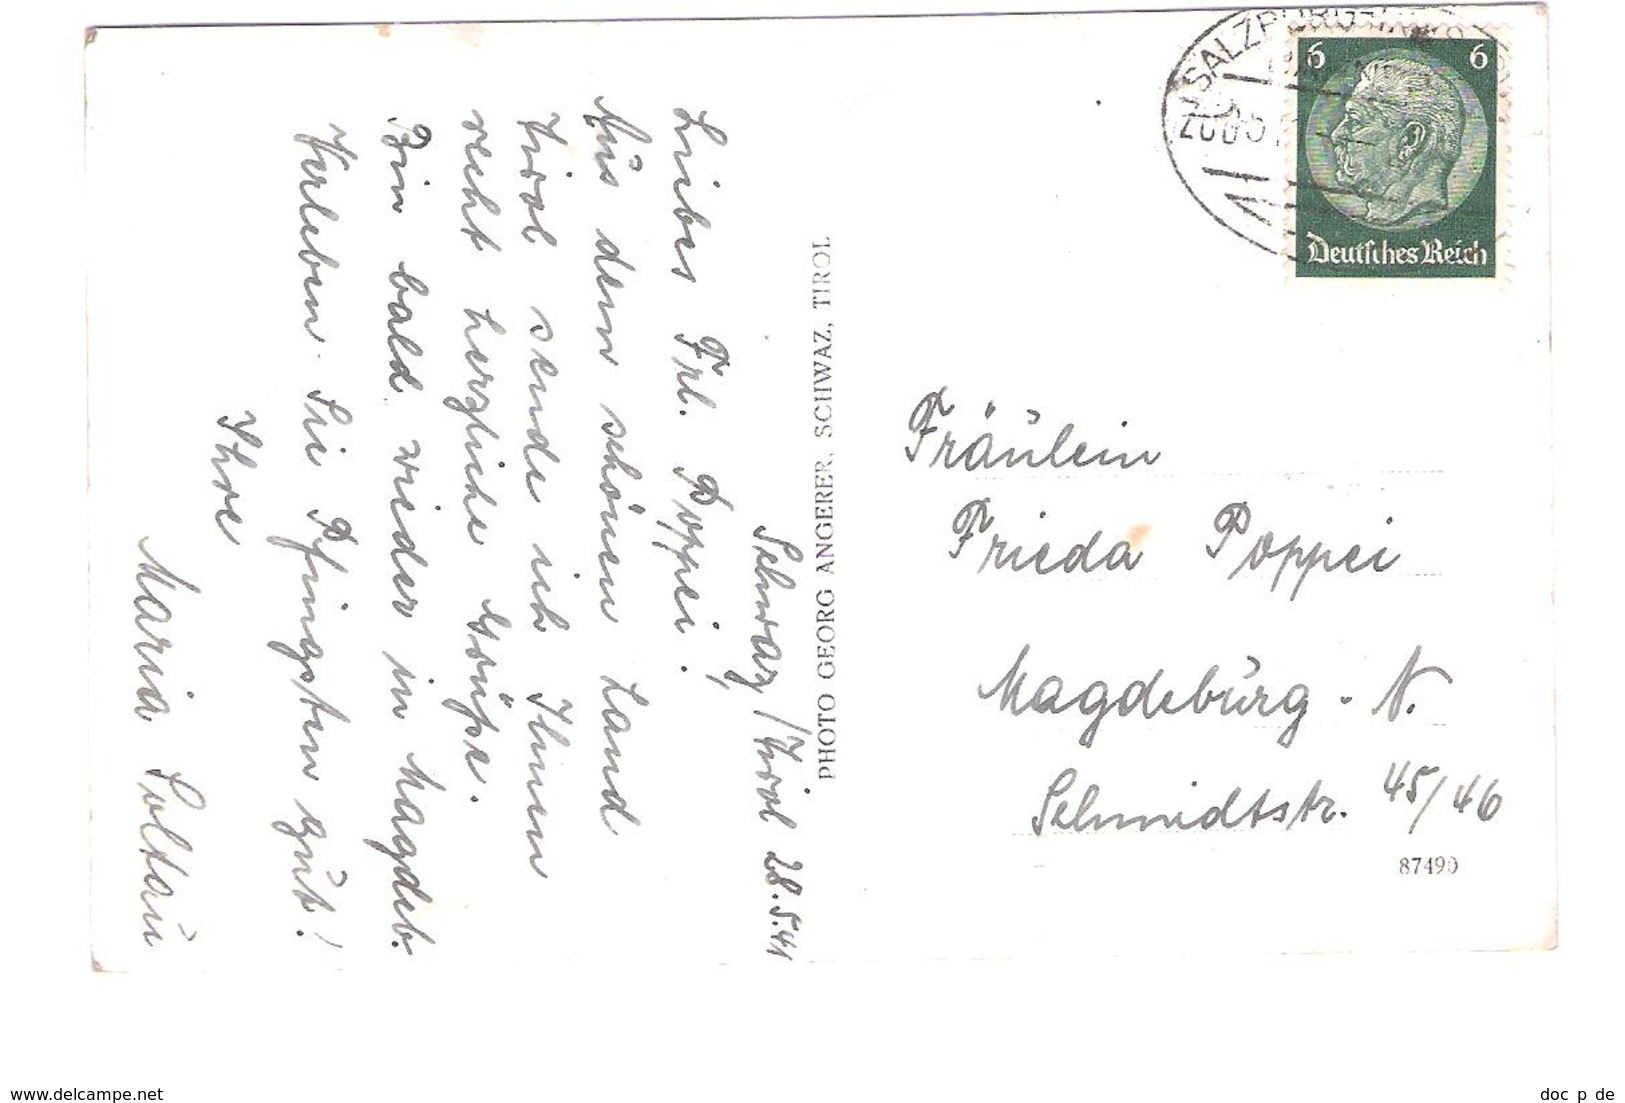 Schwaz/Tirol 28.5.41
Liebes Frl. Poppei!
Aus dem schönen Land
Tirol sende ich Ihnen
recht herzliche Grüße.
Bin bald wieder in Magdeb.
Verleben Sie Pfingsten gut!
Ihre
Maria Soltau
PHOTO GEORG ANGERER, SCHWAZ, TIROL
SALZBURG
6 6
Deutsches Reich
Fräulein
Frieda Poppei
Magdeburg - N.
Schmidtstr. 45/46
87490
www.delcampe.net
doc_p_de